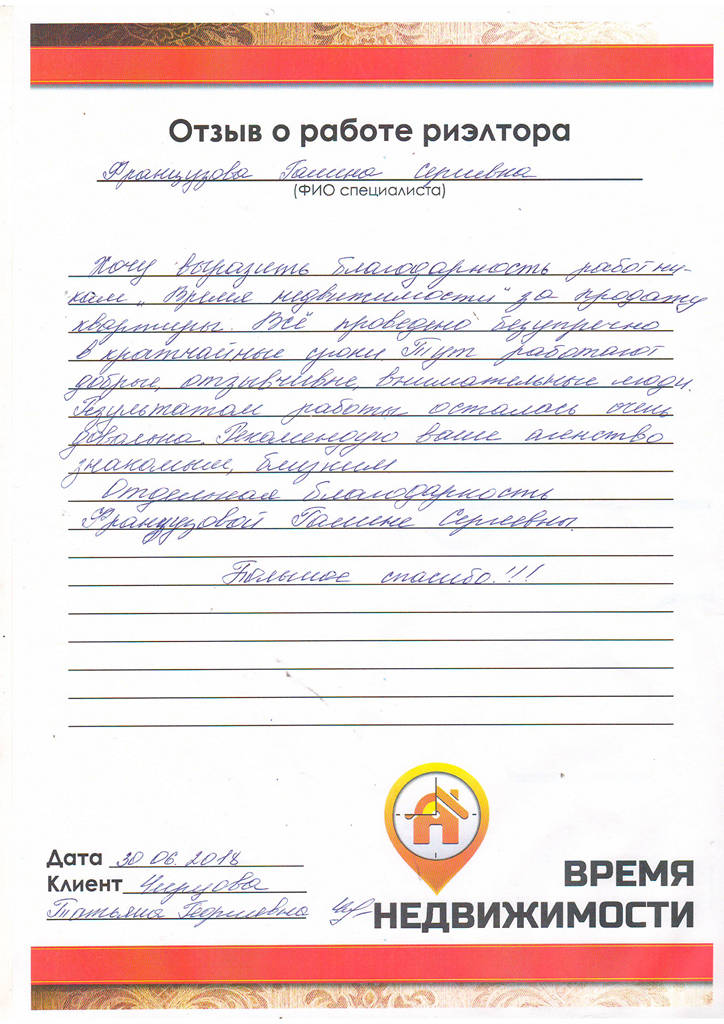 Отзыв о работе риэлтора
Французова Галина Сергиевна
(ФИО специалиста)
Хочу выразить благодарность работни-
кам „Время недвижимости" за продажу
квартиры. Всё проведено безупречно
в кратчайные сроки. Тут работают
добрые, отзывчивые, внимательные люди.
Результатом работы осталась очень
довольна. Рекомендую ваше агенство
знакомым, близким
Отдельная благодарность
Французовой Галине Сергиевны
Большое спасибо!!!
Дата 30.06.2018
Клиент
Татьяна Георгиевна
ВРЕМЯ
НЕДВИЖИМОСТИ